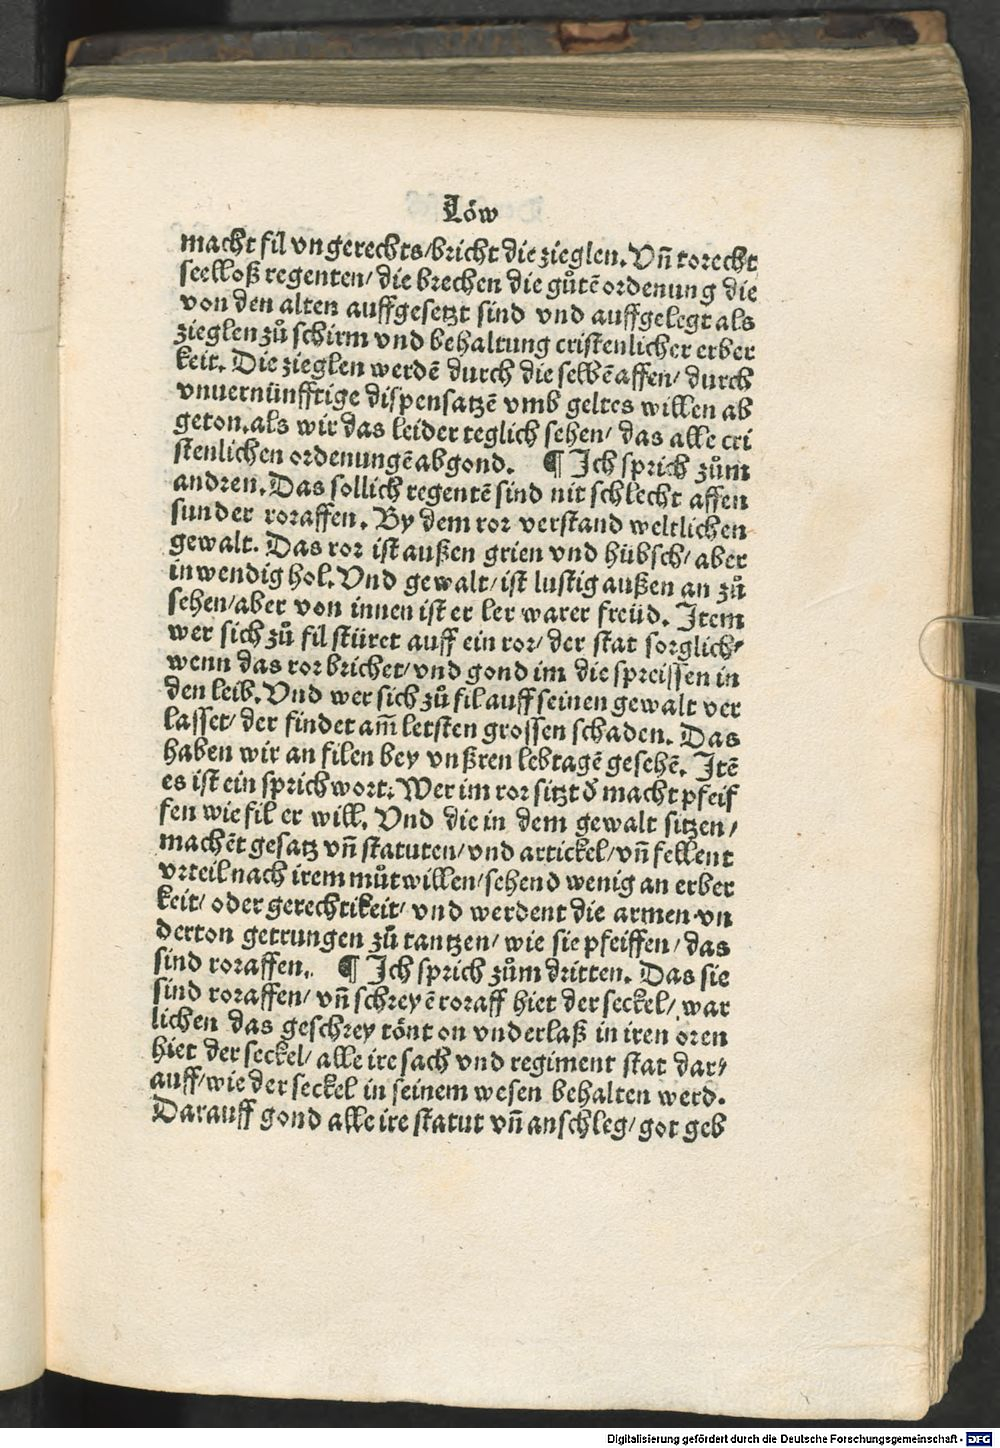 Löw
macht fil vngerechts/bricht die zieglen. Vñ torecht
seelloß regenten/ die brechen die gůtē ordenung die
von den alten auffgesetzt sind vnd auffgelegt als
zieglen zů schirm vnd behaltung cristenlicher erber
keit. Die zieglen werdē durch die selbē affen/ durch
vnuernünfftige dispensatzē vmb geltes willen ab
geton. als wir das leider teglich sehen/ das alle cri
stenlichen ordenungē abgond. ¶ Ich sprich zům
andren. Das sollich regentē sind nit schlecht affen
sunder roraffen. By dem ror verstand weltlichen
gewalt. Das ror ist außen grien vnd hübsch/ aber
inwendig hol. Vnd gewalt/ ist lustig außen an zů
sehen/aber von innen ist er ler warer freüd. Item
wer sich zů fil stüret auff ein ror/ der stat sorglich/
wenn das ror brichet/ vnd gond im die spreissen in
den leib. Vnd wer sich zů fil auff seinen gewalt ver
lasset/ der findet am̄ letsten grossen schaden. Das
haben wir an filen bey vnßren lebtagē gesehē. Itē
es ist ein sprichwort: Wer im ror sitzt d̄ macht pfeif
fen wie fil er will. Vnd die in dem gewalt sitzen/
machēt gesatz vñ statuten/ vnd artickel/ vñ fellent
vrteil nach irem můtwillen/ sehend wenig an erber
keit/ oder gerechtikeit/ vnd werdent die armen vn
derton getrungen zů tantzen/ wie sie pfeiffen/ das
sind roraffen. ¶ Ich sprich zům dritten. Das sie
sind roraffen/ vñ schreyē roraff hiet der seckel/ war
lichen das geschrey tönt on vnderlaß in iren oren
hiet der seckel/ alle ire sach vnd regiment stat dar/
auff/ wie der seckel in seinem wesen behalten werd.
Darauff gond alle ire statut vñ anschleg/ got geb
Digitalisierung gefördert durch die Deutsche Forschungsgemeinschaft - DFG